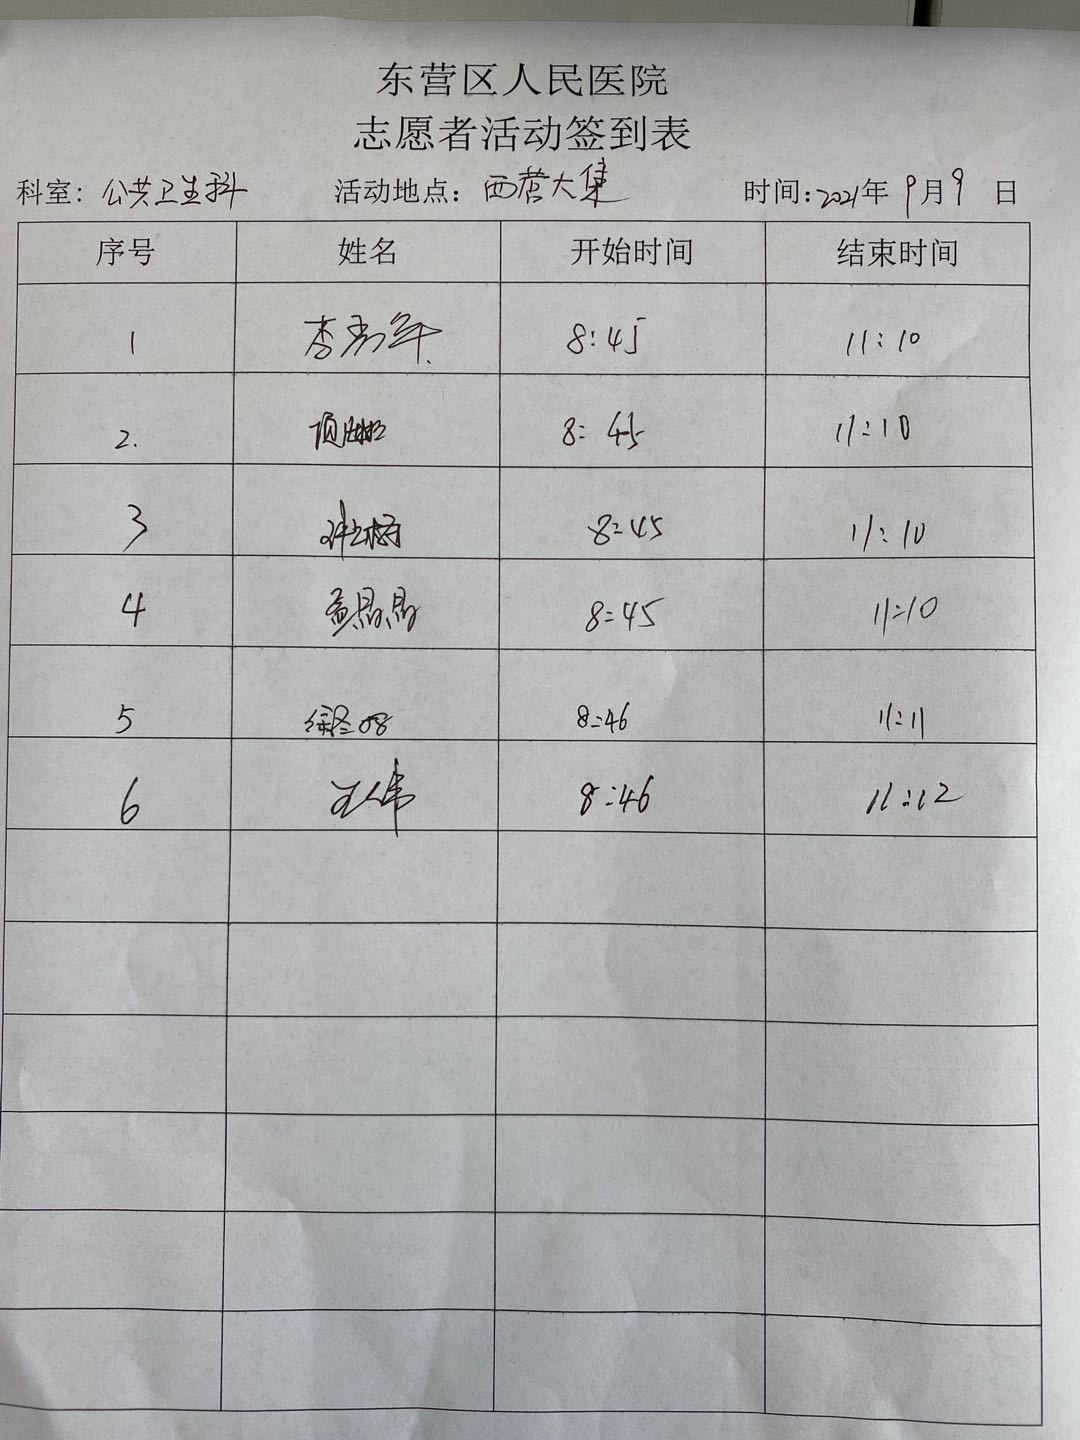 东营区人民医院
志愿者活动签到表
科室：公共卫生科 活动地点：西营大集 时间：2021年 9月9 日
序号 姓名 开始时间 结束时间
1 李 年 8:45 11:10
2. 项 8:45 11:10
3 8:45 11:10
4 孟晶晶 8:45 11:10
5 徐 8:46 11:11
6 王 伟 8:46 11:12